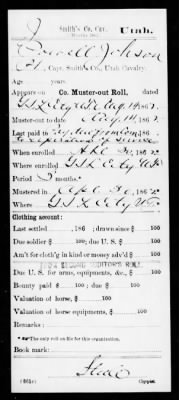 Smith's Co. Cav. Utah.
Johnson
Capt. Smith's Co., Utah Cavalry.
Age years.
Appears on Co. Muster-out Roll,
Aug 14 1862.
Muster-out to Aug 14, 1862
Last paid to 186
expiration of service
When enrolled Apl 30, 1862
Where enrolled G. S. L. City U.T.
Period 3 months.
Mustered in Apl 30, 1862
Where G. S. L. City U.T.
Clothing account:
Last settled , 186 ; drawn since $ 100
Due soldier $ 100; due U. S. $ 100
Am't for cloth'g in kind or money adv'd $ 100
Due U. S. for arms, equipments, &c., $ 100
Bounty paid $ 100; due $ 100
Valuation of horse, $ 100
Valuation of horse equipments, $ 100
Remarks:
*The only roll on file for this organization.
Book mark:
Copyist.